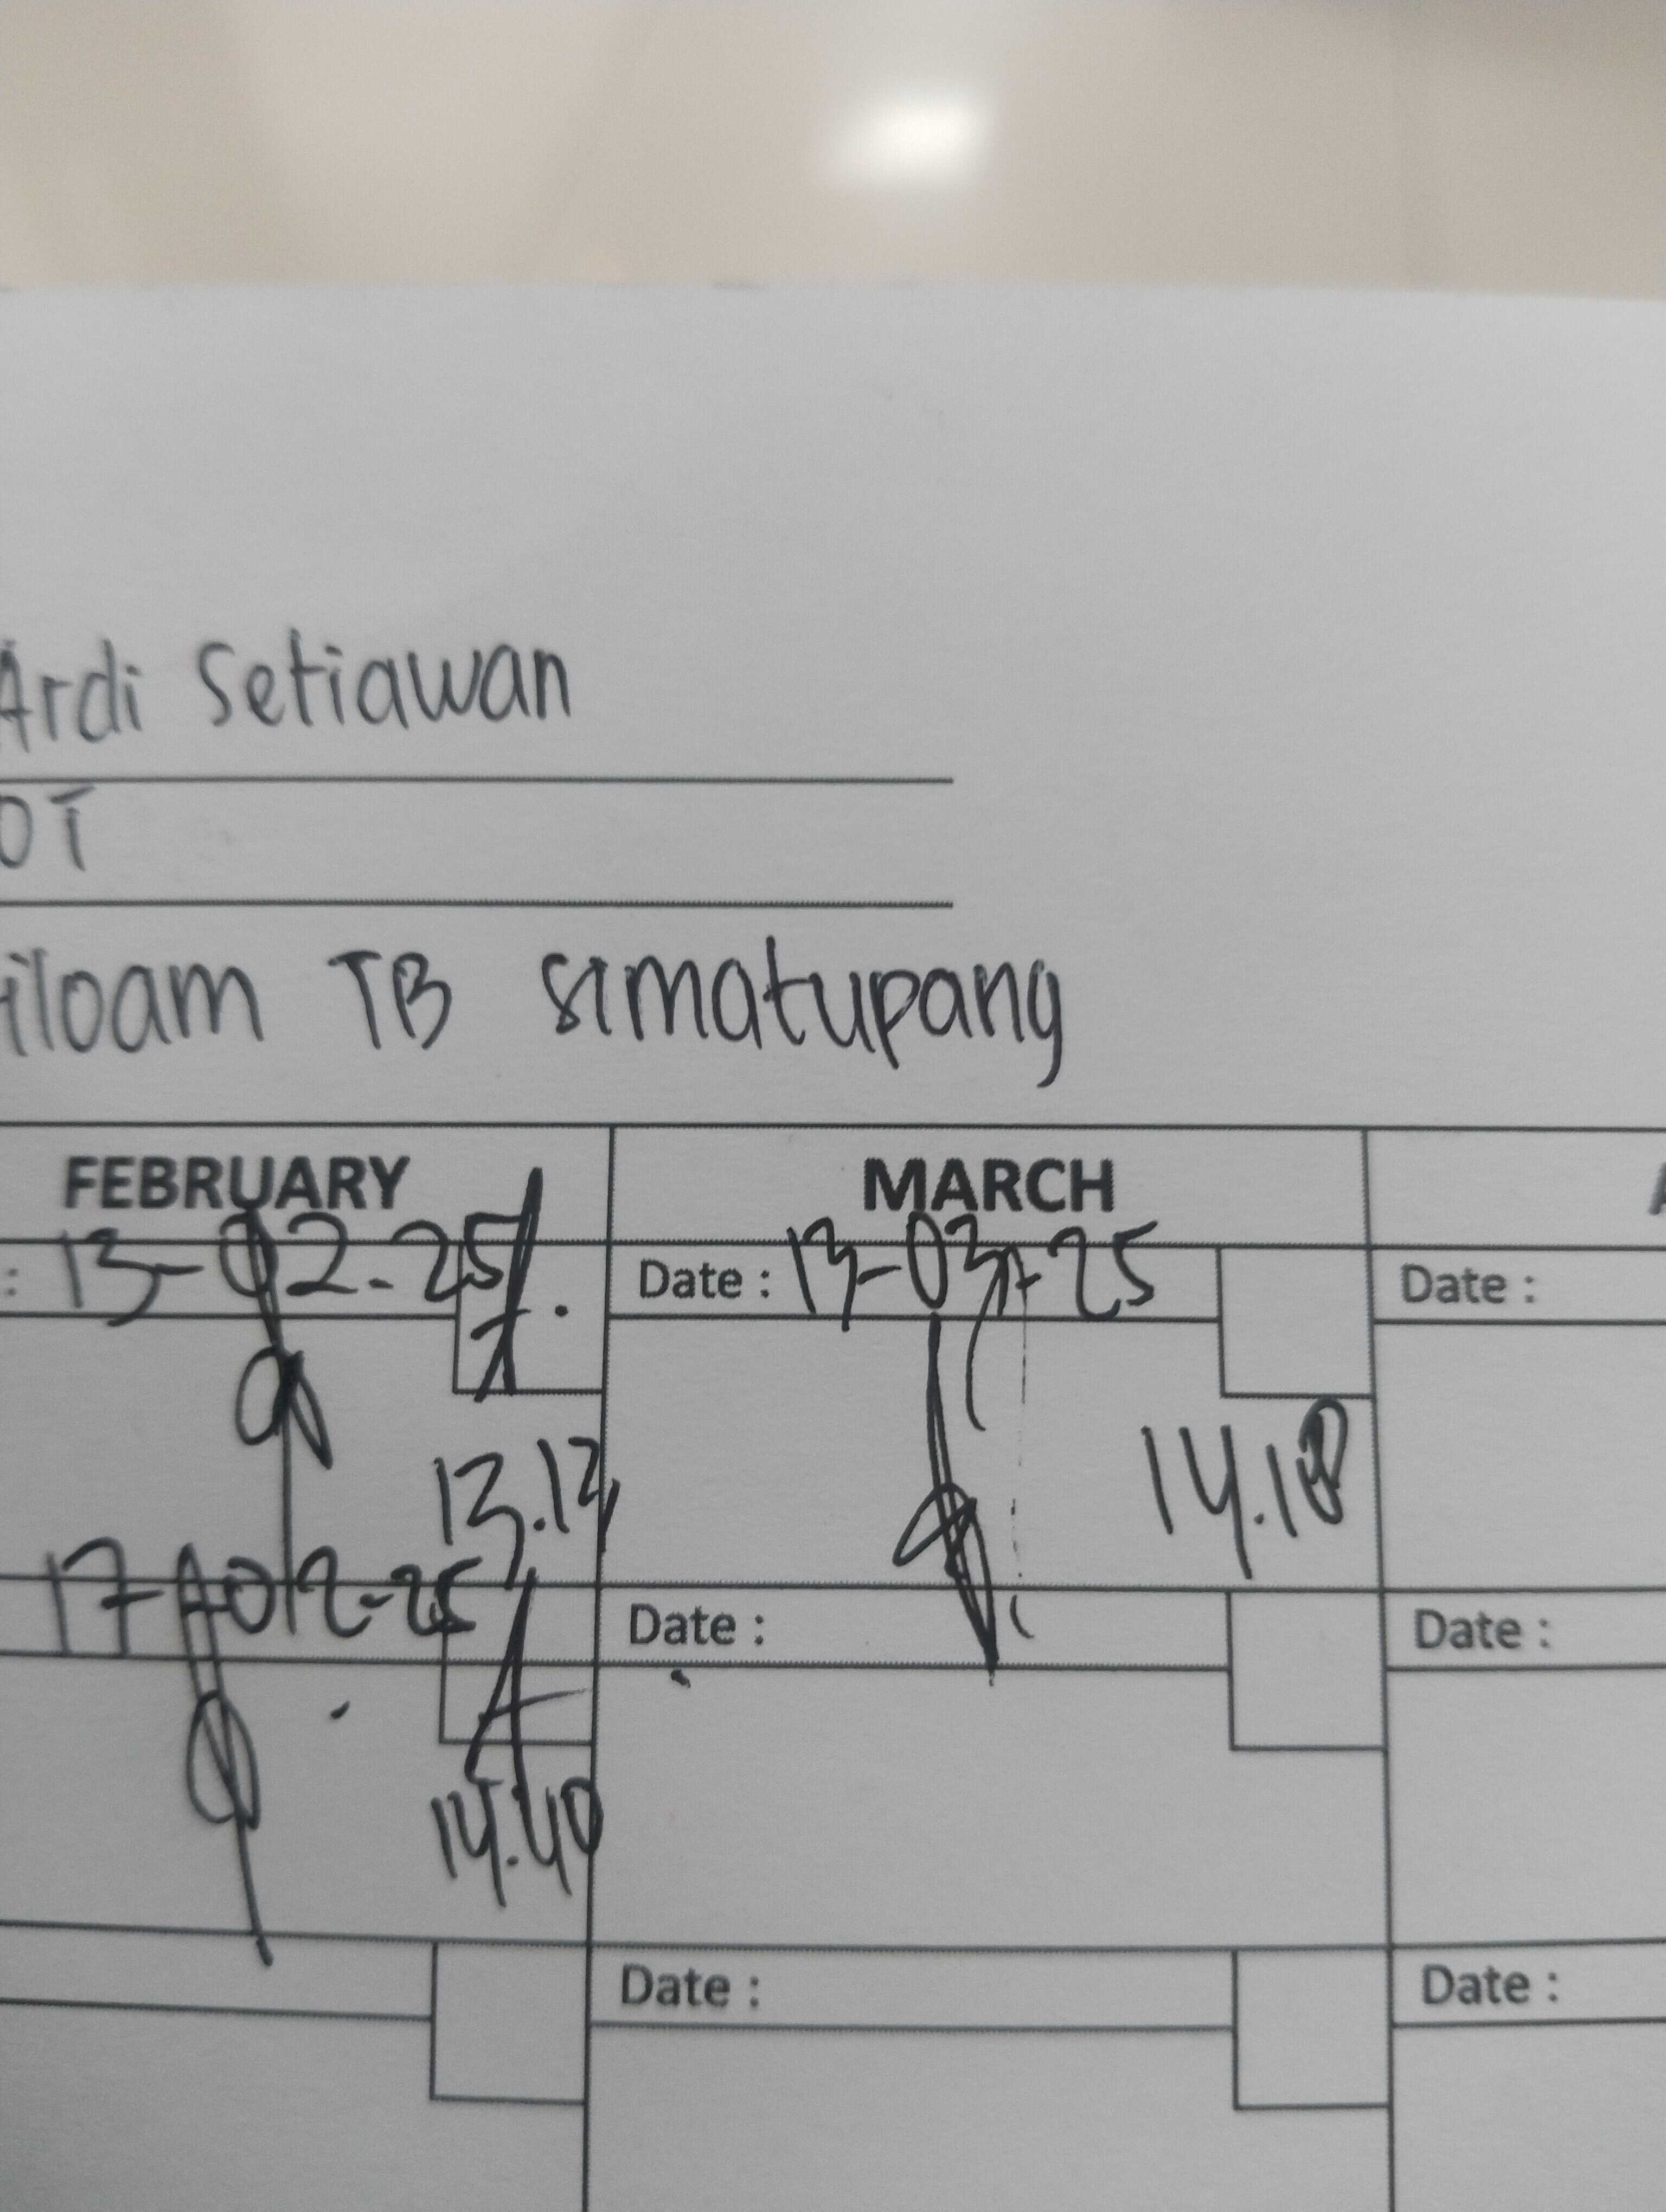 Ardi Setiawan
OT
iloam TB simatupang
FEBRUARY MARCH
: 13-02-25 Date : 13-03-25 Date :
13.13 14.18
17-02-25 Date : Date :
14.40
Date : Date :